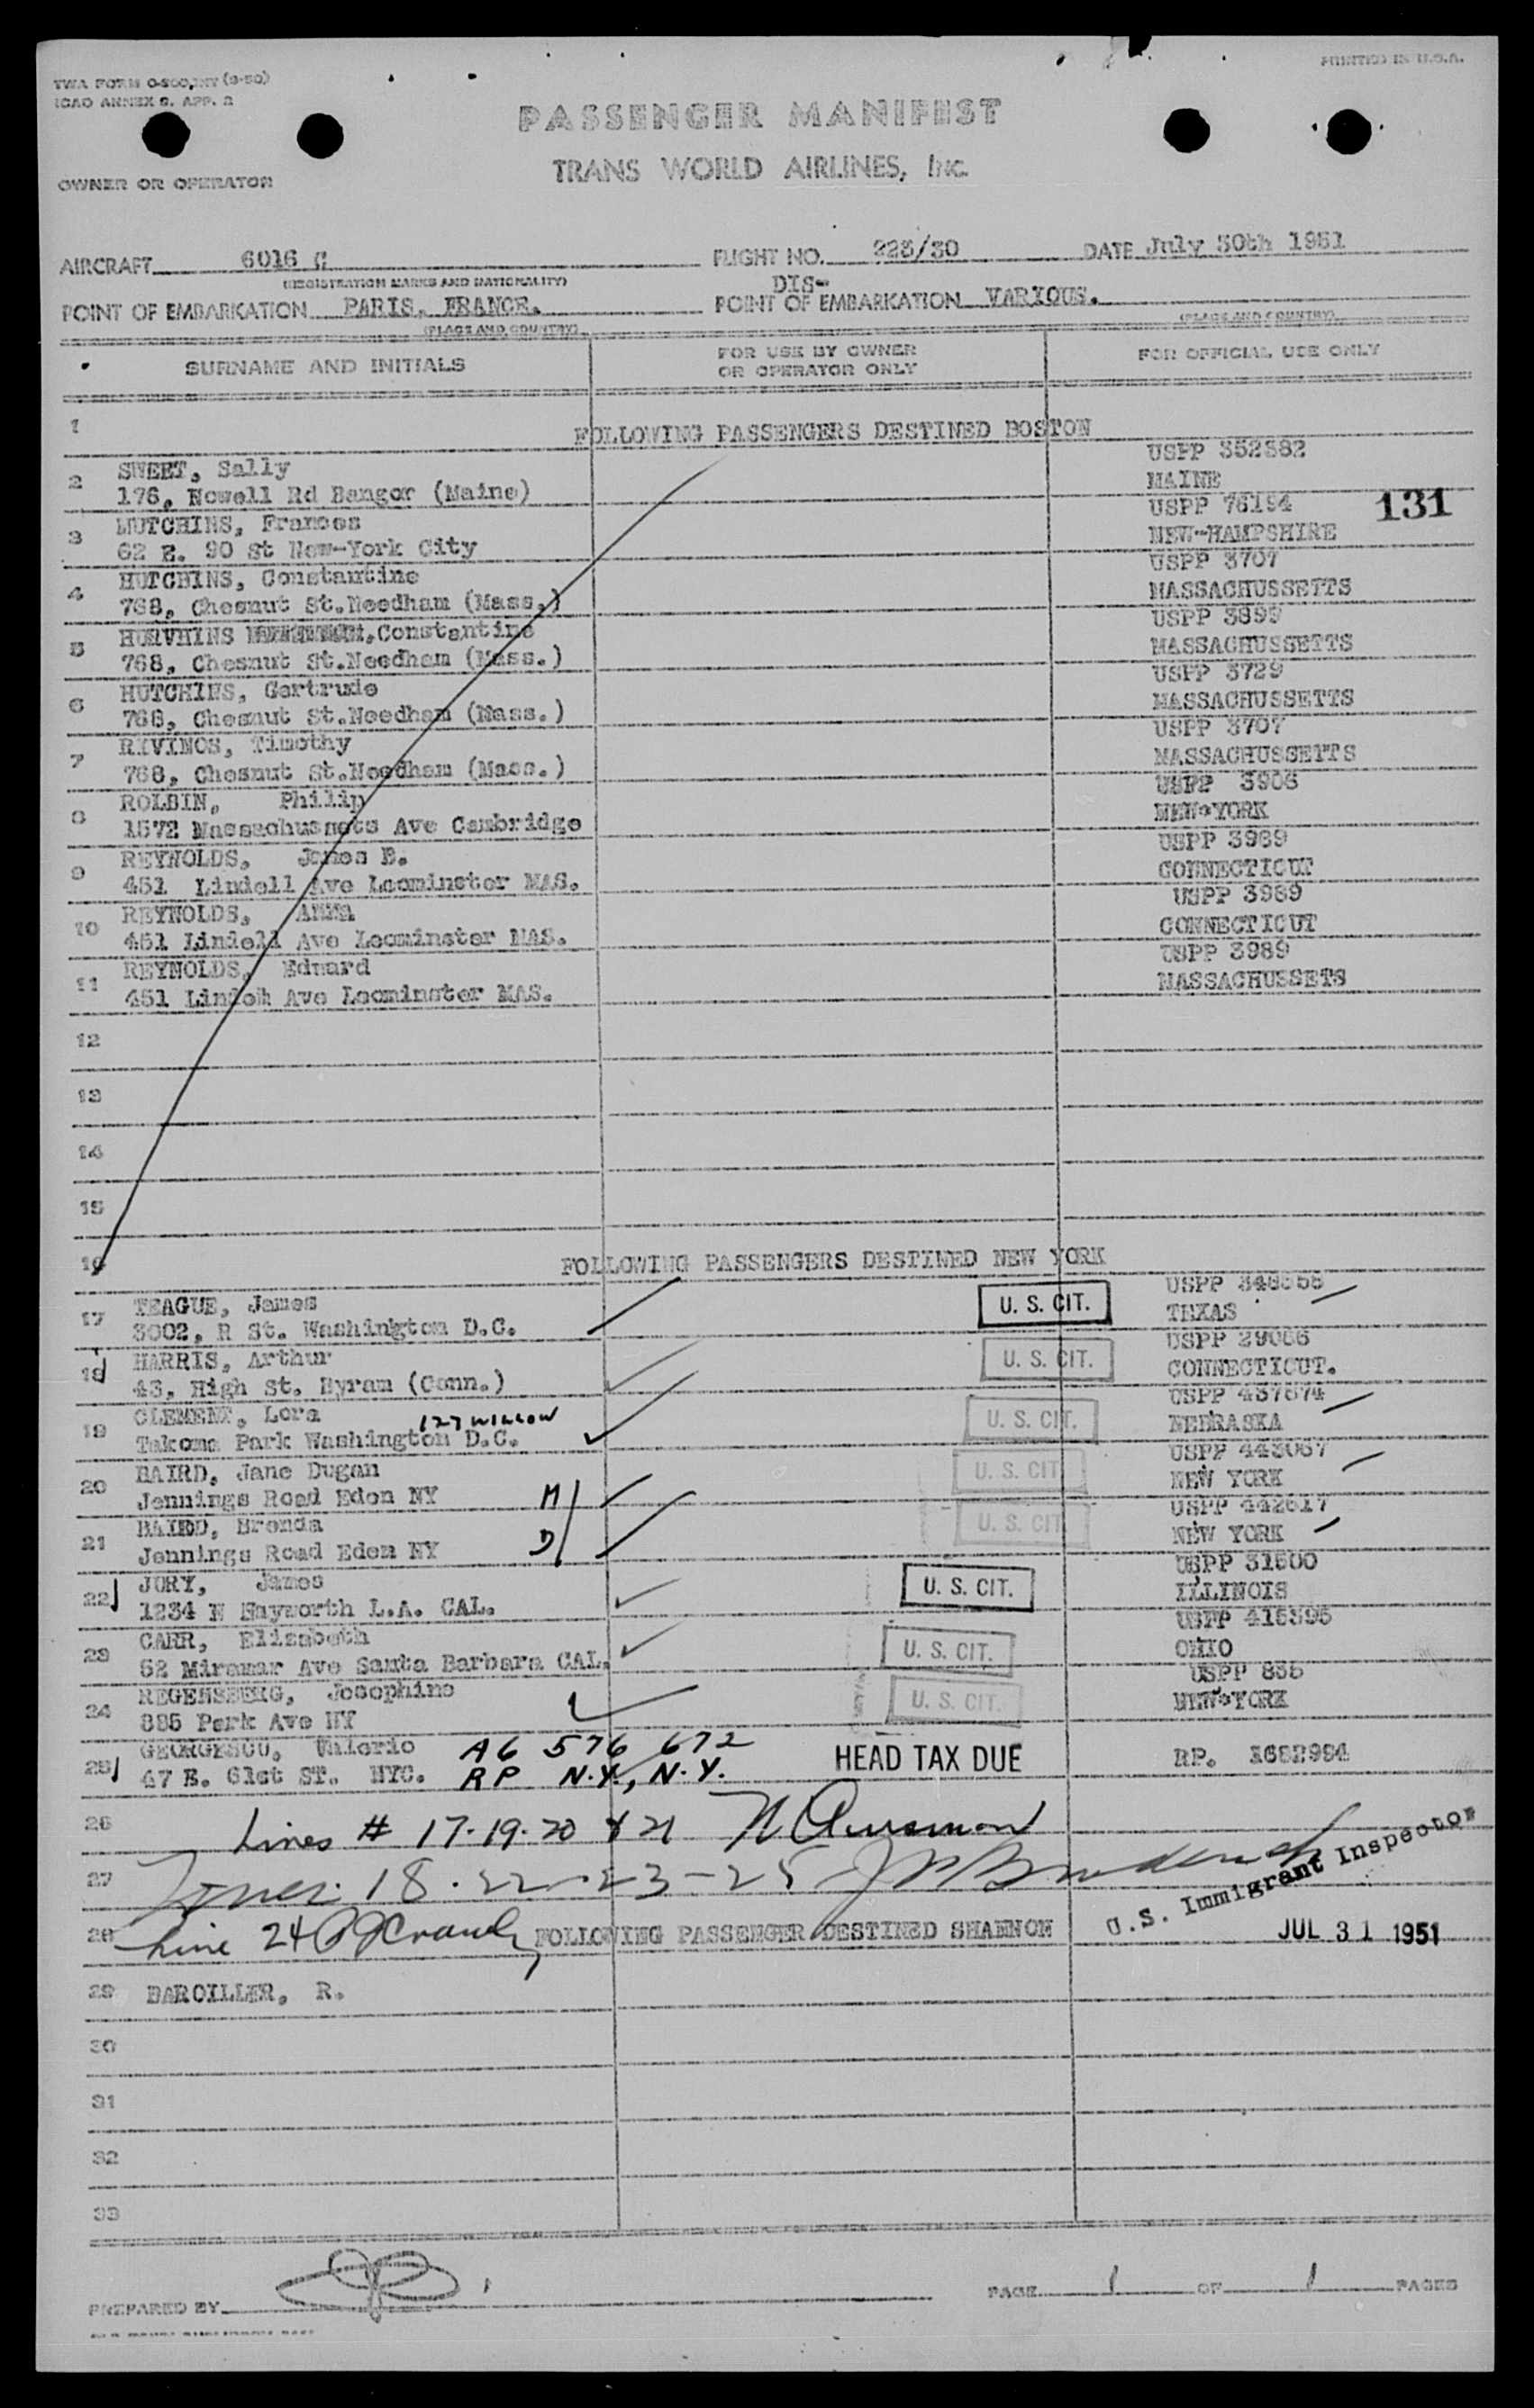 TWA FORM O-200, INT (3-50)
ICAO ANNEX 9. APP. 2
PRINTED IN U.S.A.
PASSENGER MANIFEST
TRANS WORLD AIRLINES, Inc.
OWNER OR OPERATOR
AIRCRAFT 6016 C FLIGHT NO. 223/30 DATE July 30th 1951
(REGISTRATION MARKS AND NATIONALITY) DIS-
POINT OF EMBARKATION PARIS, FRANCE. POINT OF EMBARKATION VARIOUS.
(PLACE AND COUNTRY) (PLACE AND COUNTRY)
SURNAME AND INITIALS FOR USE BY OWNER OR OPERATOR ONLY FOR OFFICIAL USE ONLY
1 FOLLOWING PASSENGERS DESTINED BOSTON
2 SWEET, Sally USPP 352382
176, Howell Rd Bangor (Maine) MAINE
131
3 HUTCHINS, Frances USPP 76194
62 E. 90 St New-York City NEW-HAMPSHIRE
4 HUTCHINS, Constantine USPP 3707
768, Chesnut St.Needham (Mass.) MASSACHUSSETTS
5 HURVHINS Constantine USPP 3899
768, Chesnut St.Needham (Mass.) MASSACHUSSETTS
6 HUTCHINS, Gertrude USPP 3729
768, Chesnut St.Needham (Mass.) MASSACHUSSETTS
7 RIVINOS, Timothy USPP 3707
768, Chesnut St.Needham (Mass.) MASSACHUSSETTS
8 ROLBIN, Philip USPP 3906
1572 Massachussets Ave Cambridge NEW-YORK
9 REYNOLDS, James E. USPP 3989
451 Lindell Ave Leominster MAS. CONNECTICUT
10 REYNOLDS, ANNA USPP 3989
451 Lindell Ave Leominster MAS. CONNECTICUT
11 REYNOLDS, Edward USPP 3989
451 Ave Leominster MAS. MASSACHUSSETS
12
13
14
15
16 FOLLOWING PASSENGERS DESTINED NEW YORK
17 TEAGUE, James U. S. CIT. USPP
3002, R St. Washington D.C. TEXAS
18 HARRIS, Arthur U. S. CIT. USPP 29086
43, High St. Byram (Conn.) CONNECTICUT.
19 CLEMENT, Lora 127 WILLOW U. S. CIT. USPP 437574
Takoma Park Washington D.C. NEBRASKA
20 BAIRD, Jane Dugan U. S. CIT. USPP 443067
Jennings Road Eden NY M NEW YORK
21 BAIRD, Brenda U. S. CIT. USPP 442517
Jennings Road Eden NY D NEW YORK
22 JURY, James U. S. CIT. USPP 31500
1234 N Hayworth L.A. CAL. ILLINOIS
23 CARR, Elizabeth U. S. CIT. USPP 415395
52 Miramar Ave Santa Barbara CAL. OHIO
24 REGENSBERG, Josephine U. S. CIT. USPP 835
885 Park Ave NY NEW-YORK
25 GEORGESCU, Valerio A6 576 672 HEAD TAX DUE RP. 1682984
47 E. 61st ST. NYC. RP N.Y., N.Y.
26 Lines # 17-19-20 & 21
27 Lines 18-22-23-25
U.S. Immigrant Inspector
28 Line 24 FOLLOWING PASSENGER DESTINED SHANNON JUL 31 1951
29 BAROILLER, R.
30
31
32
33
PREPARED BY PAGE 1 OF 1 PAGES